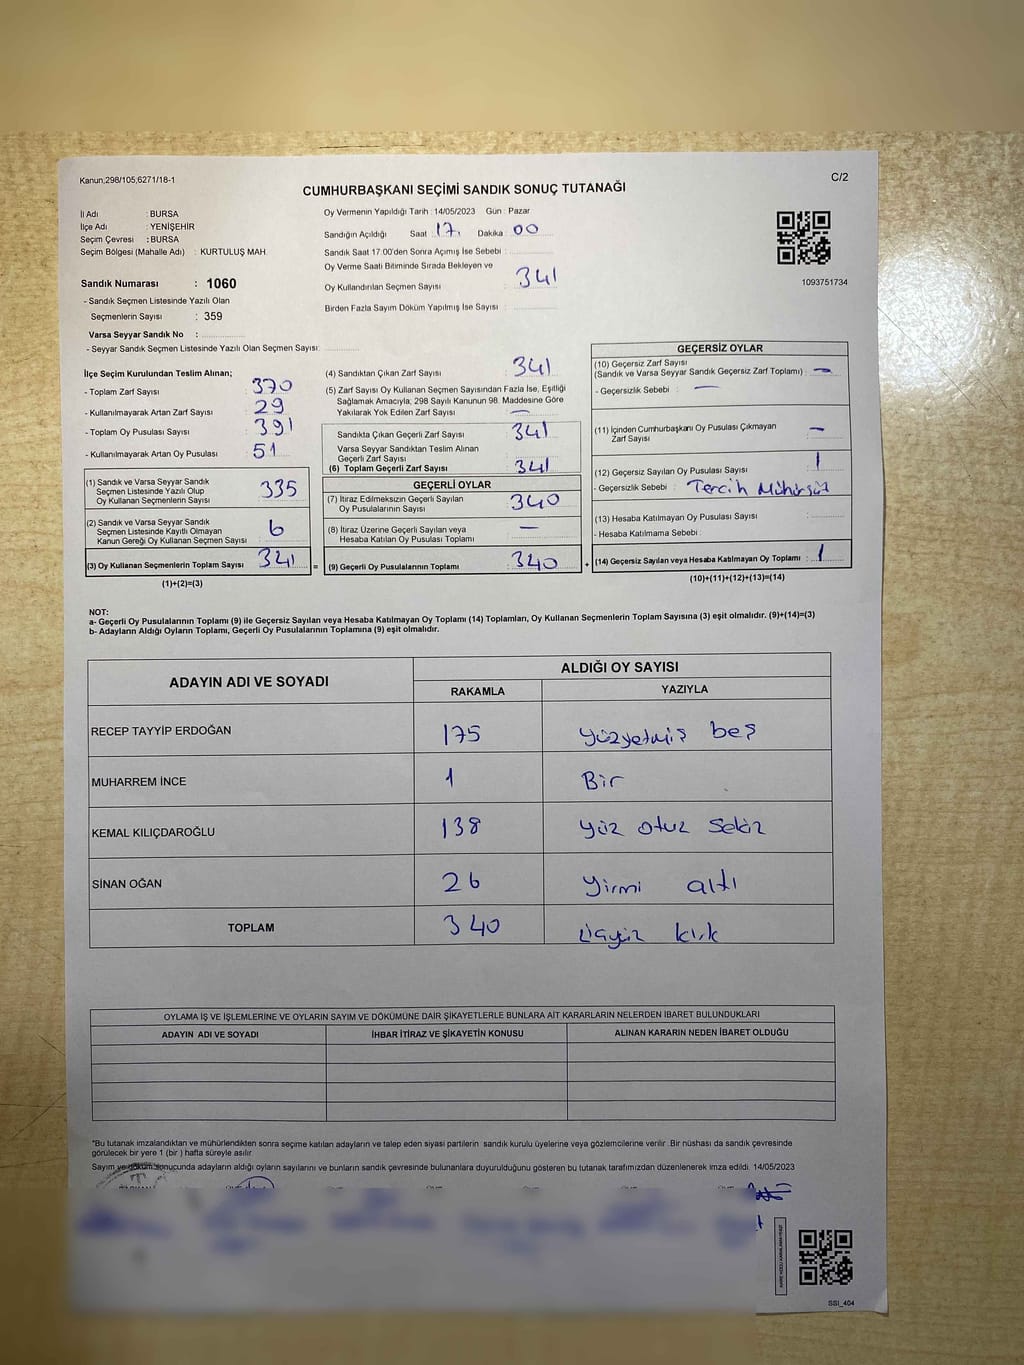 Kanun,298/105,6271/18-1
C/2
CUMHURBAŞKANI SEÇİMİ SANDIK SONUÇ TUTANAĞI
İl Adı : BURSA
İlçe Adı : YENİŞEHİR
Seçim Çevresi : BURSA
Seçim Bölgesi (Mahalle Adı) : KURTULUŞ MAH.
Oy Vermenin Yapıldığı Tarih : 14/05/2023 Gün : Pazar
Sandığın Açıldığı Saat : 17. Dakika : 00
Sandık Saat 17.00'den Sonra Açımış İse Sebebi :
Oy Verme Saati Bitiminde Sırada Bekleyen ve
Oy Kullandırılan Seçmen Sayısı : 341
Birden Fazla Sayım Döküm Yapılmış İse Sayısı :
1093751734
Sandık Numarası : 1060
- Sandık Seçmen Listesinde Yazılı Olan
Seçmenlerin Sayısı : 359
Varsa Seyyar Sandık No :
- Seyyar Sandık Seçmen Listesinde Yazılı Olan Seçmen Sayısı:
İlçe Seçim Kurulundan Teslim Alınan;
- Toplam Zarf Sayısı : 370
- Kullanılmayarak Artan Zarf Sayısı : 29
- Toplam Oy Pusulası Sayısı : 391
- Kullanılmayarak Artan Oy Pusulası : 51
(1) Sandık ve Varsa Seyyar Sandık
Seçmen Listesinde Yazılı Olup
Oy Kullanan Seçmenlerin Sayısı : 335
(2) Sandık ve Varsa Seyyar Sandık
Seçmen Listesinde Kayıtlı Olmayan
Kanun Gereği Oy Kullanan Seçmen Sayısı : 6
(3) Oy Kullanan Seçmenlerin Toplam Sayısı : 341 =
(1)+(2)=(3)
(4) Sandıktan Çıkan Zarf Sayısı : 341
(5) Zarf Sayısı Oy Kullanan Seçmen Sayısından Fazla İse, Eşitliği
Sağlamak Amacıyla; 298 Sayılı Kanunun 98. Maddesine Göre
Yakılarak Yok Edilen Zarf Sayısı : —
Sandıkta Çıkan Geçerli Zarf Sayısı : 341
Varsa Seyyar Sandıktan Teslim Alınan
Geçerli Zarf Sayısı :
(6) Toplam Geçerli Zarf Sayısı : 341
GEÇERLİ OYLAR
(7) İtiraz Edilmeksizin Geçerli Sayılan
Oy Pusulalarının Sayısı : 340
(8) İtiraz Üzerine Geçerli Sayılan veya
Hesaba Katılan Oy Pusulası Toplamı : —
(9) Geçerli Oy Pusulalarının Toplamı : 340 +
GEÇERSİZ OYLAR
(10) Geçersiz Zarf Sayısı
(Sandık ve Varsa Seyyar Sandık Geçersiz Zarf Toplamı) : —
- Geçersizlik Sebebi : —
(11) İçinden Cumhurbaşkanı Oy Pusulası Çıkmayan
Zarf Sayısı : —
(12) Geçersiz Sayılan Oy Pusulası Sayısı : 1
- Geçersizlik Sebebi : Tercih Mühürsüz
(13) Hesaba Katılmayan Oy Pusulası Sayısı :
- Hesaba Katılmama Sebebi :
(14) Geçersiz Sayılan veya Hesaba Katılmayan Oy Toplamı : 1
(10)+(11)+(12)+(13)=(14)
NOT:
a- Geçerli Oy Pusulalarının Toplamı (9) ile Geçersiz Sayılan veya Hesaba Katılmayan Oy Toplamı (14) Toplamları, Oy Kullanan Seçmenlerin Toplam Sayısına (3) eşit olmalıdır. (9)+(14)=(3)
b- Adayların Aldığı Oyların Toplamı, Geçerli Oy Pusulalarının Toplamına (9) eşit olmalıdır.
ADAYIN ADI VE SOYADI ALDIĞI OY SAYISI
RAKAMLA YAZIYLA
RECEP TAYYİP ERDOĞAN 175 yüzyetmiş beş
MUHARREM İNCE 1 Bir
KEMAL KILIÇDAROĞLU 138 yüz otuz sekiz
SİNAN OĞAN 26 yirmi altı
TOPLAM 340 üçyüz kırk
OYLAMA İŞ VE İŞLEMLERİNE VE OYLARIN SAYIM VE DÖKÜMÜNE DAİR ŞİKAYETLERLE BUNLARA AİT KARARLARIN NELERDEN İBARET BULUNDUKLARI
ADAYIN ADI VE SOYADI İHBAR İTİRAZ VE ŞİKAYETİN KONUSU ALINAN KARARIN NEDEN İBARET OLDUĞU
*Bu tutanak imzalandıktan ve mühürlendikten sonra seçime katılan adayların ve talep eden siyasi partilerin sandık kurulu üyelerine veya gözlemcilerine verilir .Bir nüshası da sandık çevresinde
görülecek bir yere 1 (bir ) hafta süreyle asılır
Sayım ve döküm sonucunda adayların aldığı oyların sayılarını ve bunların sandık çevresinde bulunanlara duyurulduğunu gösteren bu tutanak tarafımızdan düzenlenerek imza edildi. 14/05/2023
SSI_404